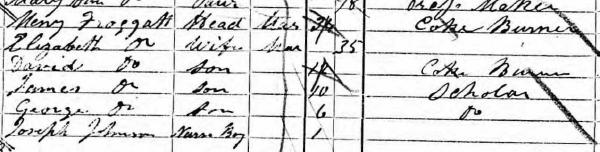 Henry Froggatt Head Mar Coke Burner
Elizabeth Do Wife Mar 35
David Do Son Coke Burner
James Do Son 10 Scholar
George Do Son 6 Do
Joseph Johnson Nurse Boy 1